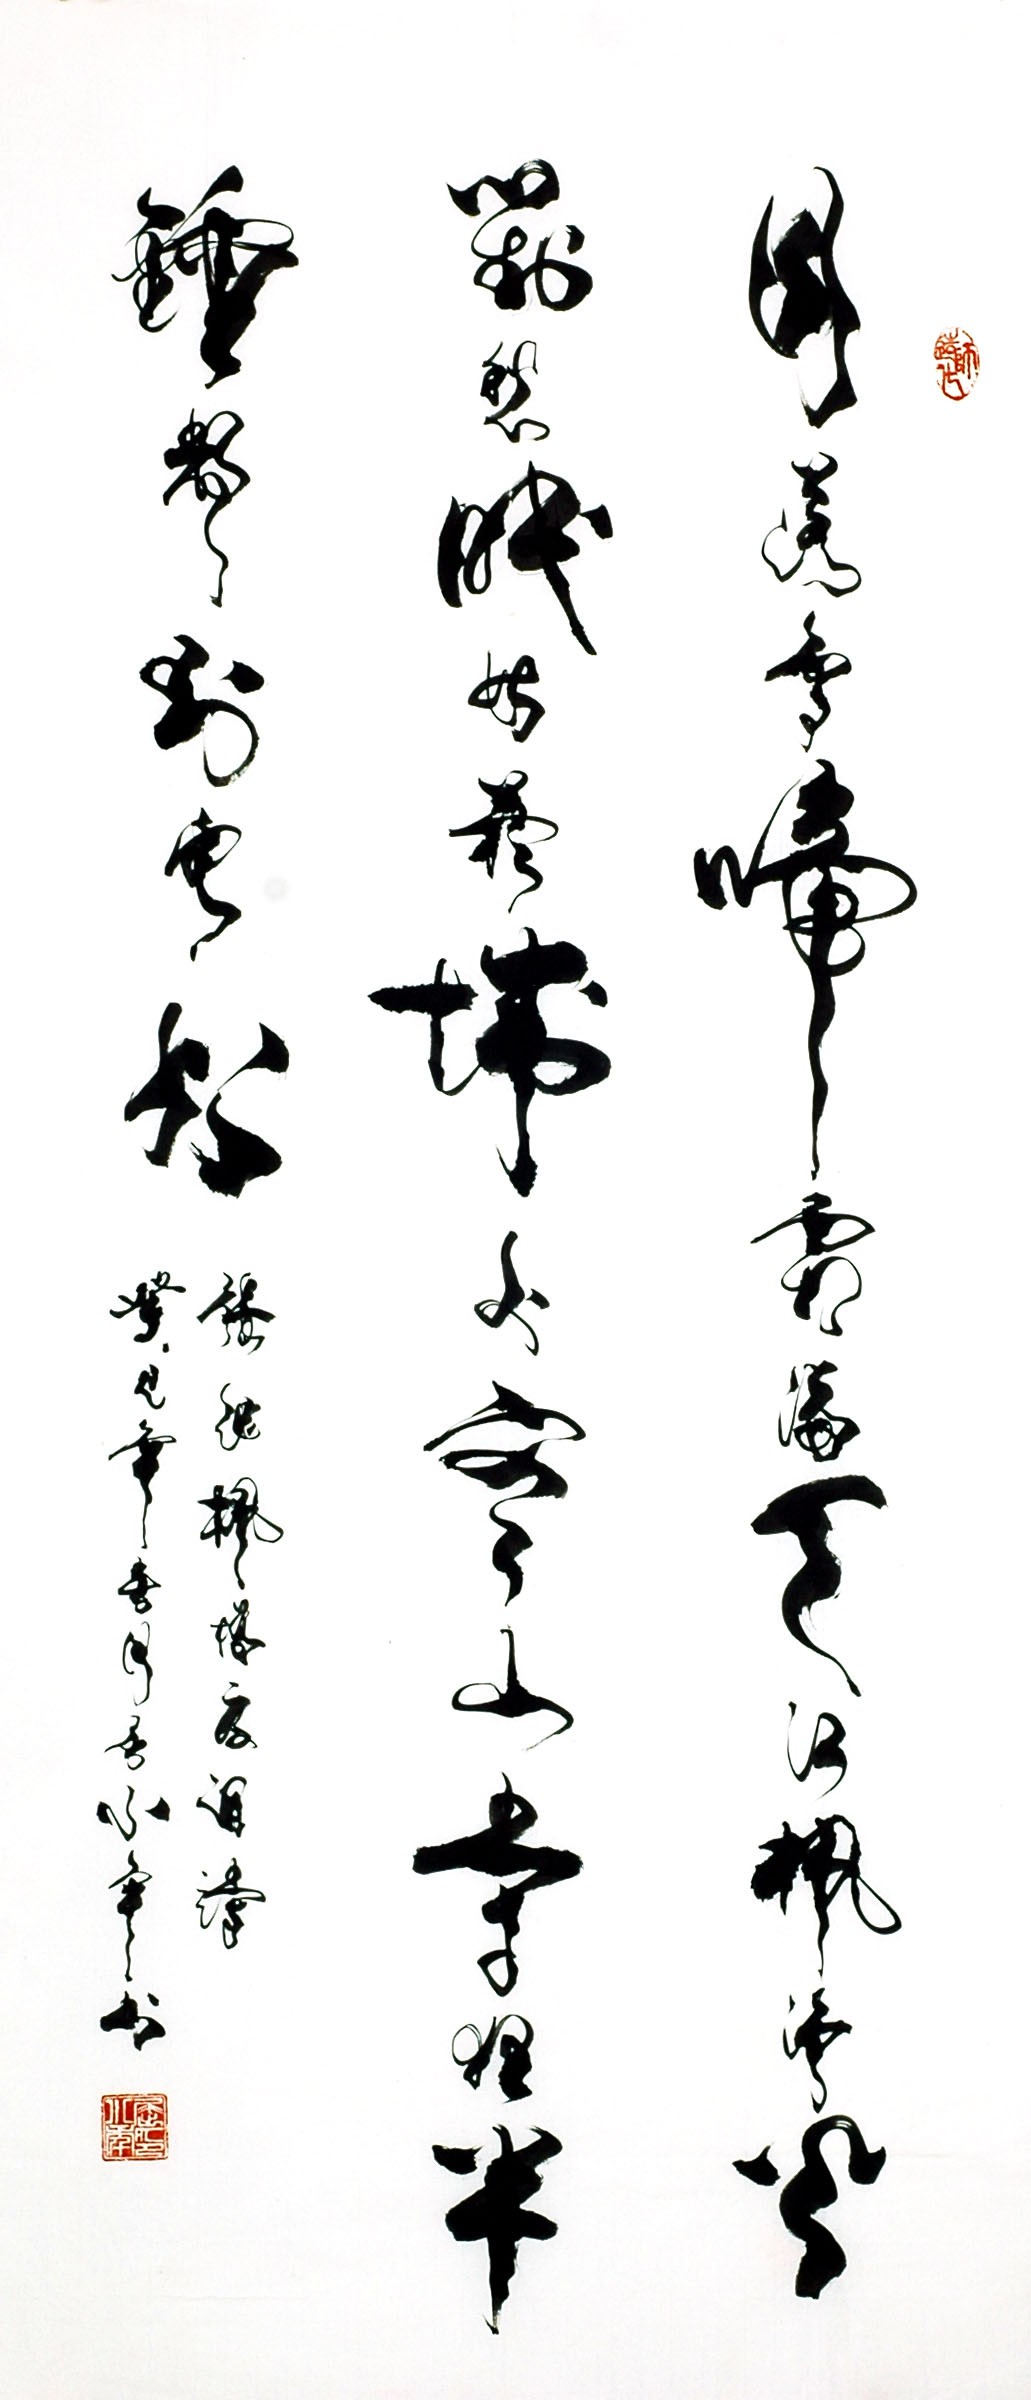 月落烏啼霜滿天江楓漁火
對愁眠姑蘇城外寒山寺夜半
鐘聲到客船
張繼楓橋夜泊
癸巳年春月小年書